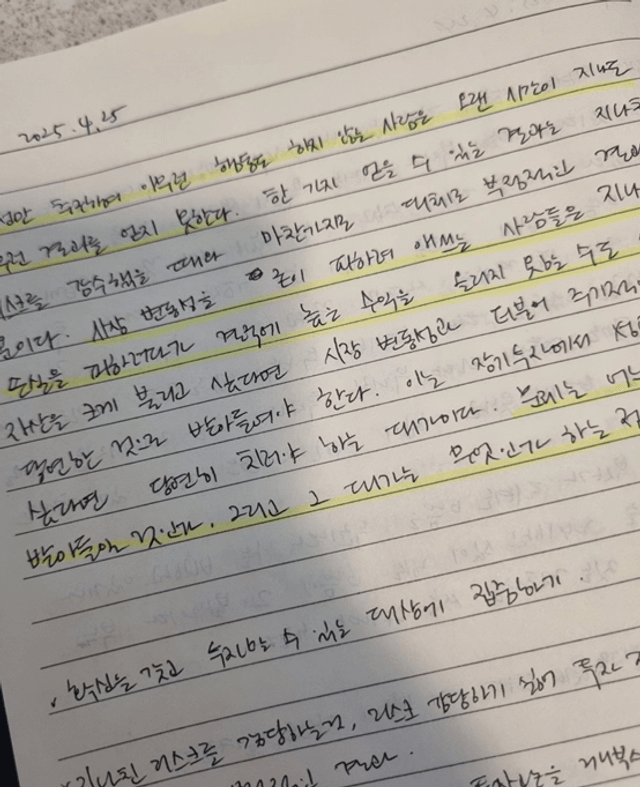 2025.4.25
하지 않는 사람은 오랜 시간이 지나도
얻지 못한다. 한 가지 얻을 수 있는 결과는 지나친
리스크를 감수했을 때와 마찬가지로 대체로 부정적인
시장 변동성을 굳이 피하려 애쓰는 사람들은
손실을 피하려다가 결국에 높은 수익을 올리지 못할 수도
자산을 크게 불리고 싶다면 시장 변동성과 더불어 주기적인
당연한 것으로 받아들여야 한다. 이는 장기투자에서
싶다면 당연히 치러야 하는 대가이다. 문제는
받아들일 것인가, 그리고 그 대가는 무엇인가 하는
확신을 갖고 투자할 수 있는 대상에 집중하기.
지나친 리스크를 감당하는것, 리스크 감당하기 싫어 투자
결과.